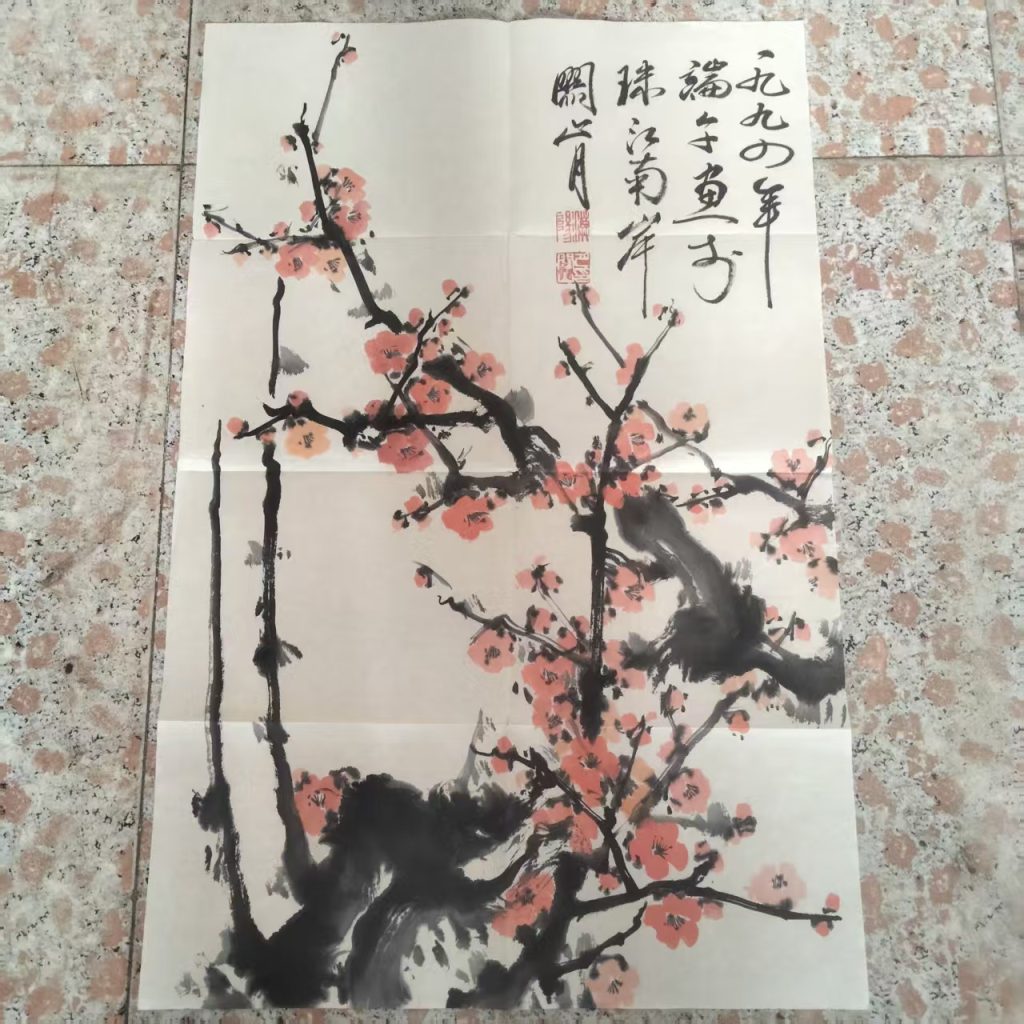 一九九四年
端午畫於
珠江南岸
關山月